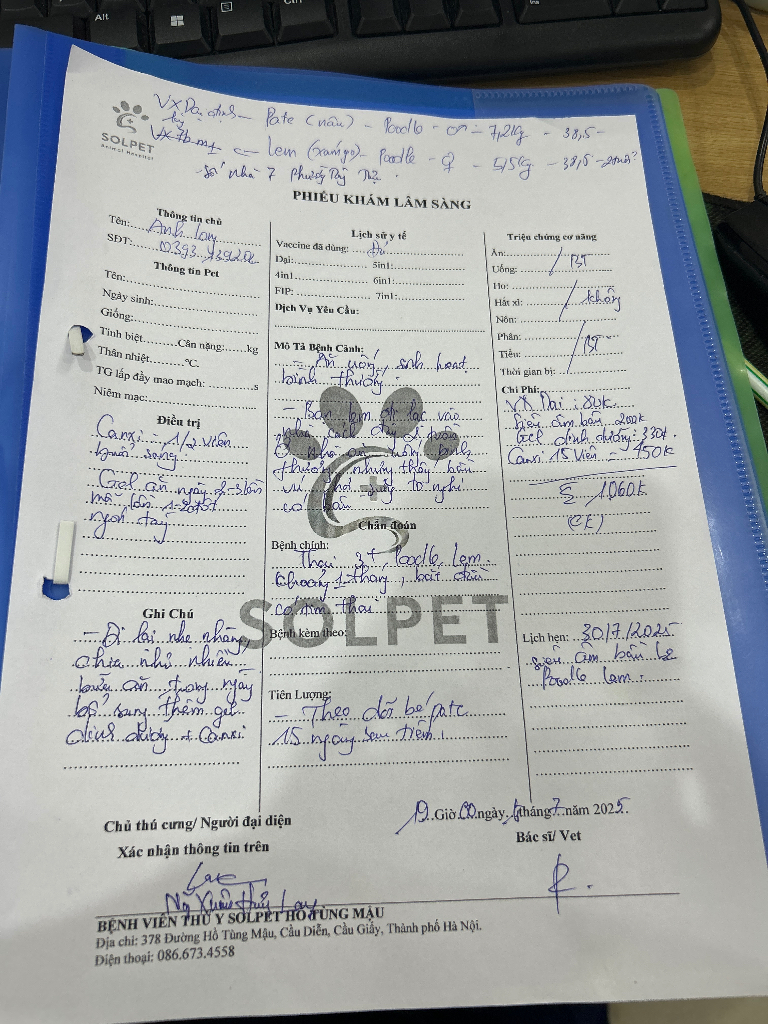 Alt
Ctrl
Ins
SOLPET
Animal Hospital
Pate (nâu) - Poodle - ♂ - 7,2kg - 38,5 -
Lem (xám) - Poodle - ♀ - 5,5kg - 38,5 -
Số nhà 7
PHIẾU KHÁM LÂM SÀNG
Thông tin chủ
Tên: Anh
SĐT:
Thông tin Pet
Tên:
Ngày sinh:
Giống:
Tính biệt Cân nặng: kg
Thân nhiệt °C.
TG lấp đầy mao mạch: s
Niêm mạc:
Điều trị
Canxi: 1/2 viên
buổi sáng
Gel ăn ngày 2-3 lần
mỗi lần 1-2 đốt
ngón tay
Ghi Chú
- Đi lại nhẹ nhàng,
chia nhỏ nhiều
bữa ăn trong ngày
bổ sung thêm gel
dinh dưỡng + Canxi
Lịch sử y tế
Vaccine đã dùng: Đủ
Dại: 5in1:
4in1 6in1:
FIP: 7in1:
Dịch Vụ Yêu Cầu:
Mô Tả Bệnh Cảnh:
- Ăn uống, sinh hoạt
bình thường.
- Bạn lem đi lạc vào
nhà
ở nhà ăn uống bình
thường nhưng thấy bầu
vú to nghi
có bầu
Chẩn đoán
Bệnh chính:
Thai Poodle lem
khoảng 1 tháng, bắt đầu
có tim thai
SOLPET
Bệnh kèm theo:
Tiên Lượng:
- Theo dõi bé pate
15 ngày sau tiêm.
Triệu chứng cơ năng
Ăn:
Uống: BT
Ho:
Hắt xì: không
Nôn:
Phân:
Tiểu: BT
Thời gian bị:
Chi Phí:
VX Dại: 80k
siêu âm bầu 200k
gel dinh dưỡng: 330k
Canxi 15 viên - 450k
Σ 1060k
(CK)
Lịch hẹn: 30/7/2025
siêu âm bầu bé
Poodle lem.
Chủ thú cưng/ Người đại diện
Xác nhận thông tin trên
19 Giờ 00 ngày tháng 7 năm 2025
Bác sĩ/ Vet
BỆNH VIỆN THÚ Y SOLPET HỒ TÙNG MẬU
Địa chỉ: 378 Đường Hồ Tùng Mậu, Cầu Diễn, Cầu Giấy, Thành phố Hà Nội.
Điện thoại: 086.673.4558